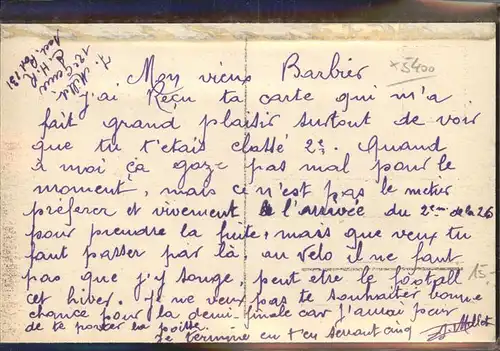 Mon vieux Barbier
x5400
j'ai Reçu ta carte qui m'a
fait grand plaisir surtout de voir
que tu t'étais classé 2e. Quand
à moi ça gaze pas mal pour le
moment, mais ce n'est pas le métier
préférer et vivement l'arrivée du 2ème de la 26
pour prendre la fuite, mais que veux tu
faut passer par là, au velo il ne faut
pas que j'y songe, peut etre le football
cet hiver. Je ne veux pas te souhaiter bonne
chance pour la demi-finale car j'aurai peur
de te porter la poisse.
Je termine en t'en serrant cinq
15.